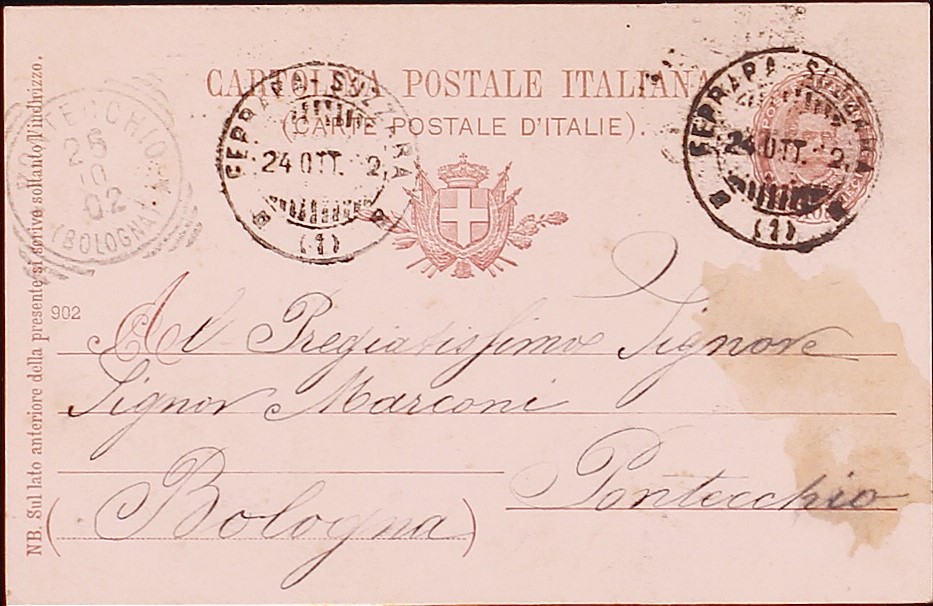 CARTOLINA POSTALE ITALIANA
(CARTE POSTALE D'ITALIE).
PONTECCHIO
25
10
02
(BOLOGNA)
FERRARA-SUZZARA
24 OTT. 2
(1)
FERRARA-SUZZARA
24 OTT. 2
(1)
NB. Sul lato anteriore della presente si scrive soltanto l'indirizzo.
902
Al Pregiatissimo Signore
Signor Marconi
Pontecchio
(Bologna)